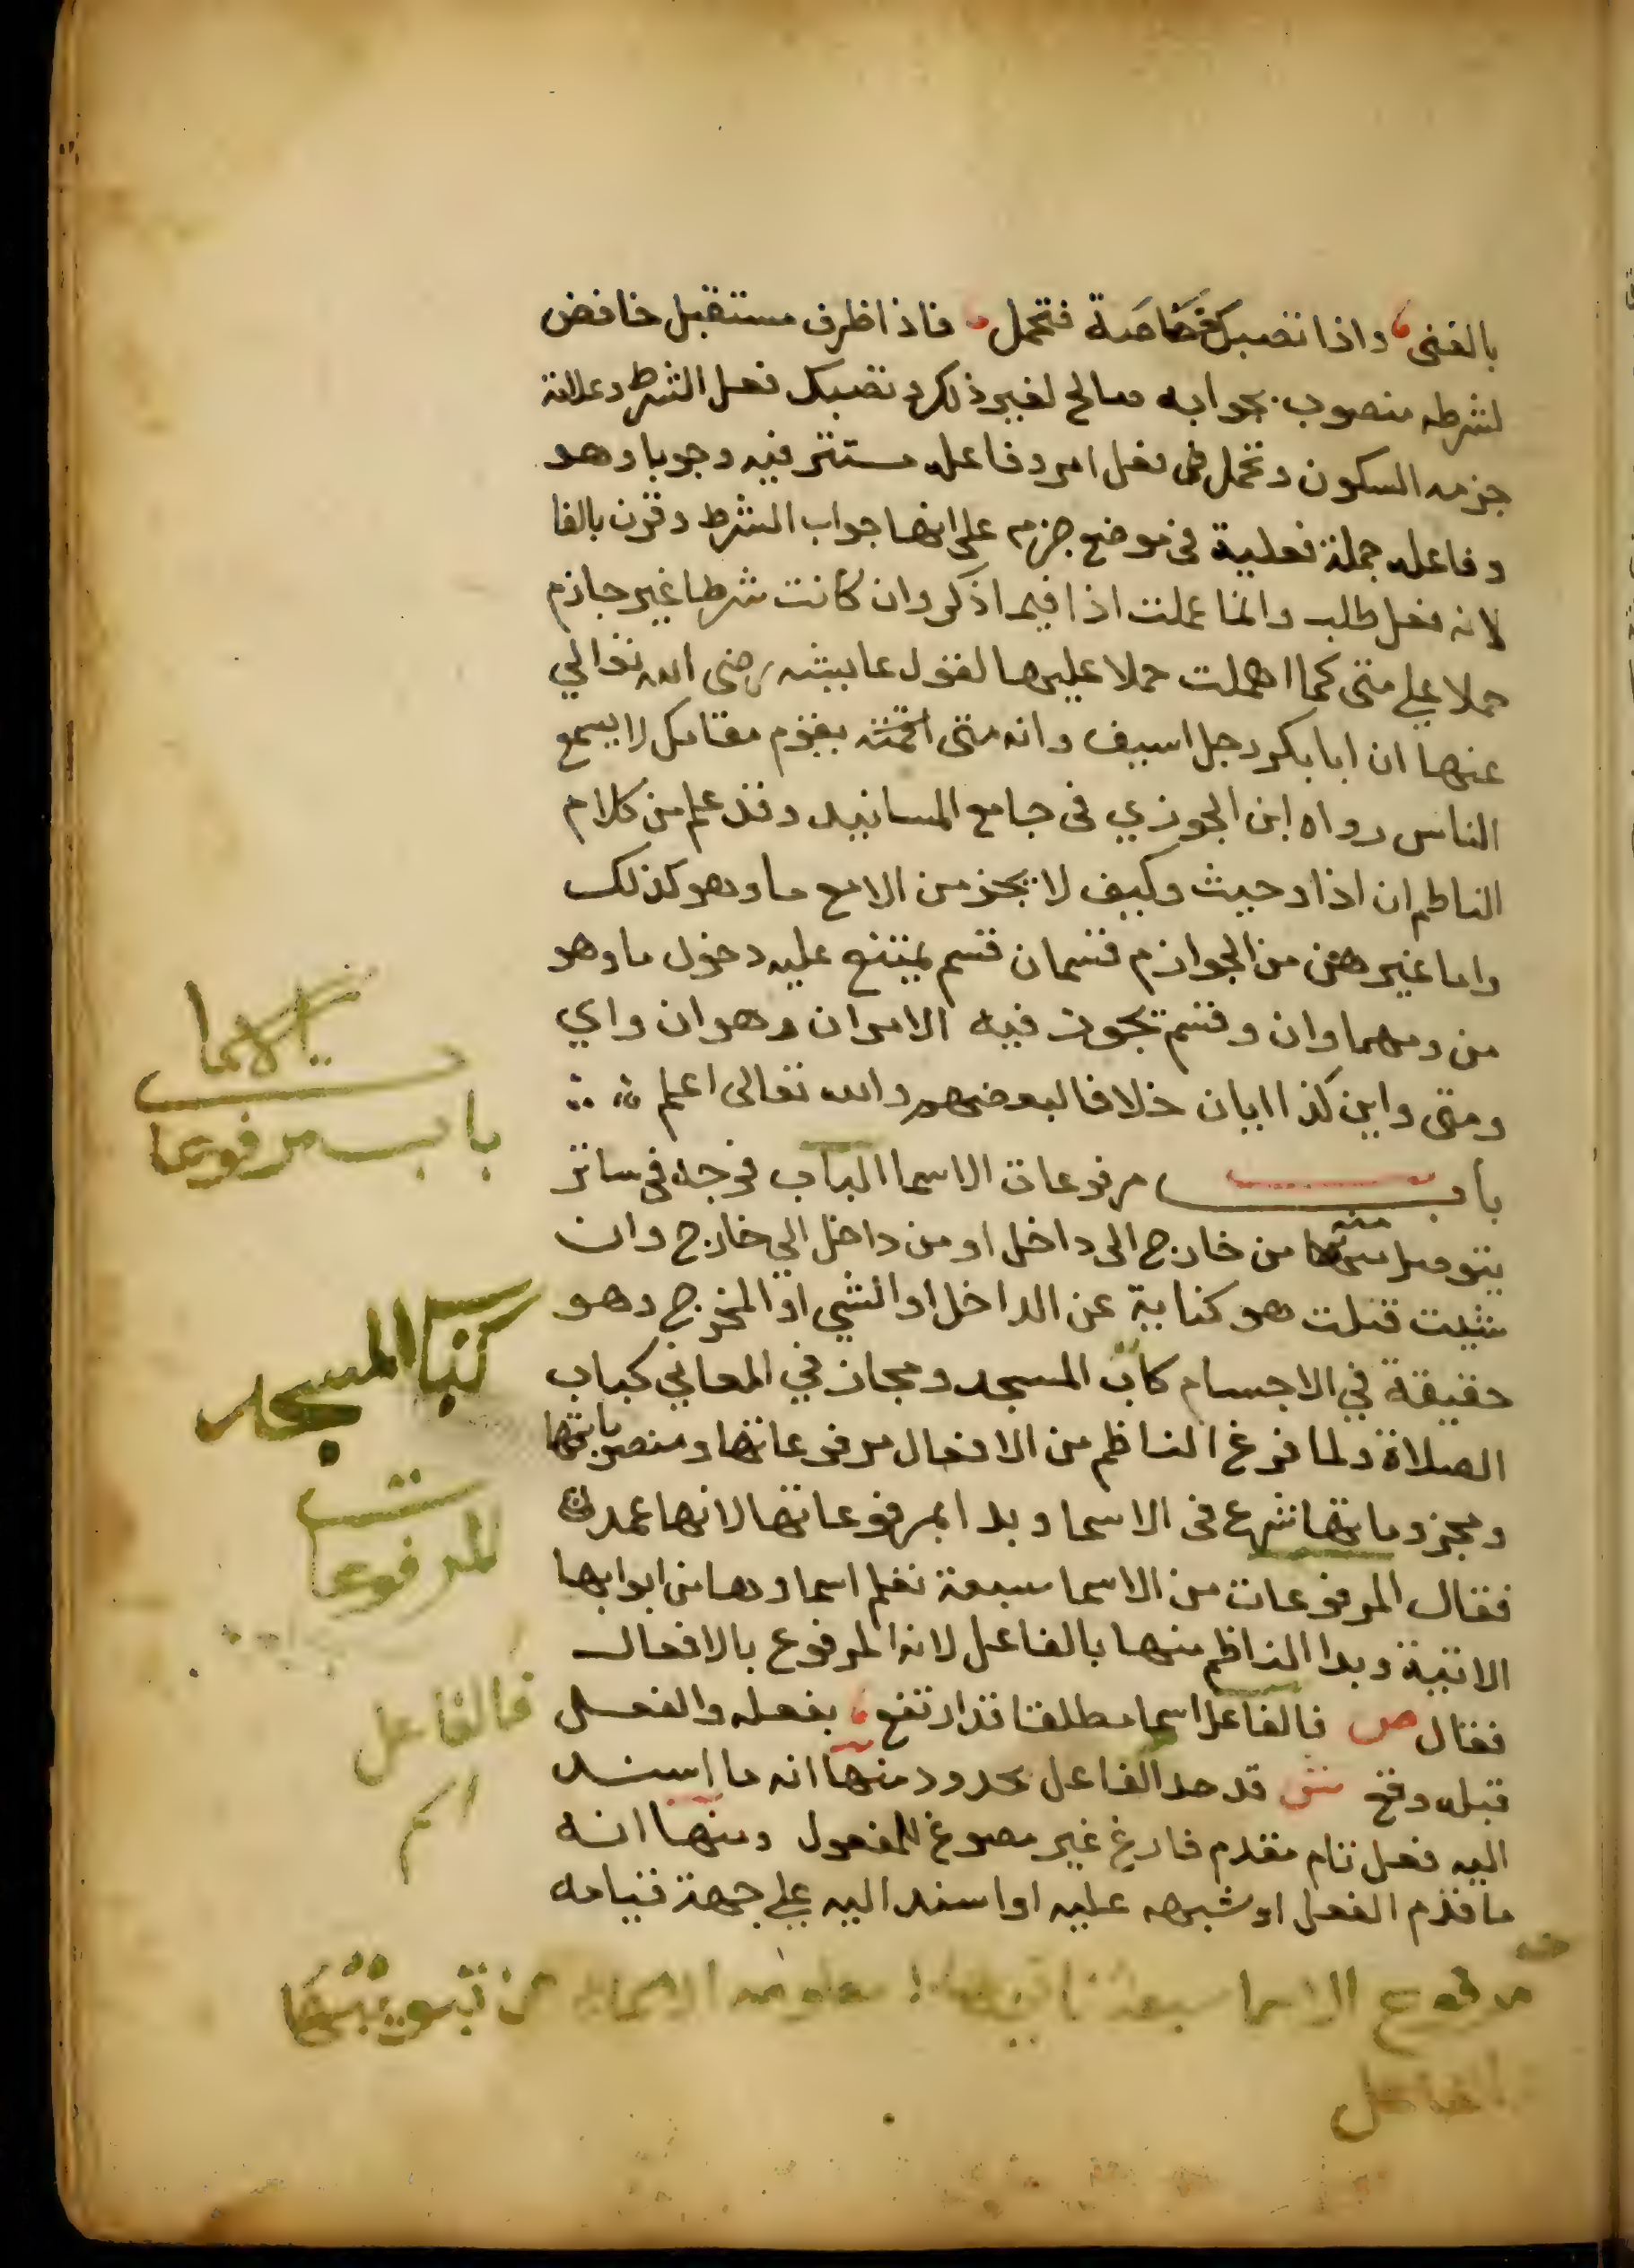 بالغنى واذا تصبك خصاصة فتحمل فاذا ظرف مستقبل خافض
لشرطه منصوب بجوابه صالح لغير ذلك وتصبك فعل الشرط وعلامة
جزمه السكون وتحمل فعل امر وفاعله مستتر فيه وجوبا وهو
وفاعله جملة فعلية في موضع جزم على انها جواب الشرط وقرن بالفا
لانه فعل طلب وانما عملت اذا فيما ذكر وان كانت شرطا غير جازم
حملا على متى كما اهملت حملا عليها لقول عايشه رضى الله تعالي
عنها ان ابا بكر رجل اسيف وانه متى اقمته يقوم مقامك لا يسمع
الناس رواه ابن الجوزي فى جامع المسانيد وقد علم من كلام
الناظم ان اذا وحيث وكيف لا يجزمن الا مع ما وهو كذلك
واما غيرهن من الجوازم قسمان قسم يمتنع عليه دخول ما وهو
من ومهما وان وقسم يجوز فيه الامران وهو ان واي
ومتى واين كذا ايان خلافا لبعضهم والله تعالى اعلم
باب مرفوعات الاسما الباب فرجه فى ساتر
يتوصل منها من خارج الى داخل او من داخل الي خارج وان
شيت قلت هو كناية عن الداخل او الشي او المخرج وهو
حقيقة في الاجسام كباب المسجد ومجاز في المعاني كباب
الصلاة ولما فرغ الناظم من الافعال مرفوعاتها ومنصوباتها
ومجزوماتها شرع فى الاسما وبدا بمرفوعاتها لانها عمدة
فقال المرفوعات من الاسما سبعة تعلم اسماوها من ابوابها
الاتية وبدا الناظم منها بالفاعل لانه المرفوع بالافعال
فقال ص فالفاعل اسما مطلقا قد ارتفع بفعله والفعل
قبله وقع ش قد حد الفاعل بحدود منها انه ما اسند
اليه فعل تام مقدم فارغ غير مصوغ للمفعول ومنها انه
ما قدم الفعل او شبهه عليه او اسند اليه على جهة قيامه
الاسما
باب مرفوعا
كباب المسجد
المرفوعات
فالفاعل
اسم
مرفوع الاسما سبعة
الفاعل